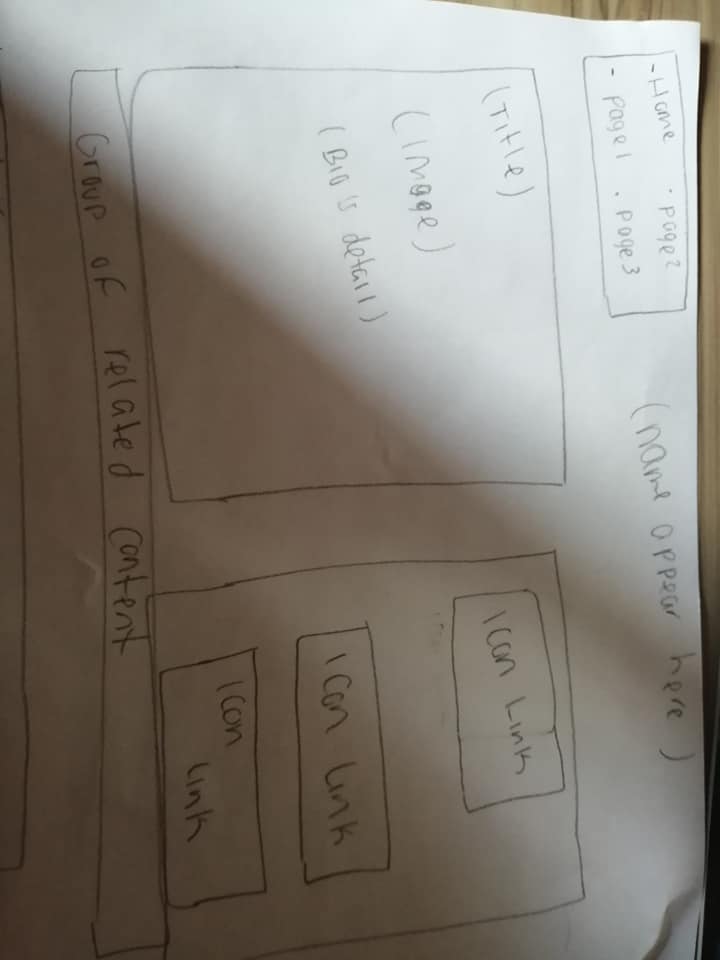 - Home · page2
- page1 · page3
(name appear here)
(Title)
(Image)
(Bio's detail)
Icon Link
Icon Link
Icon
Link
Group of related content